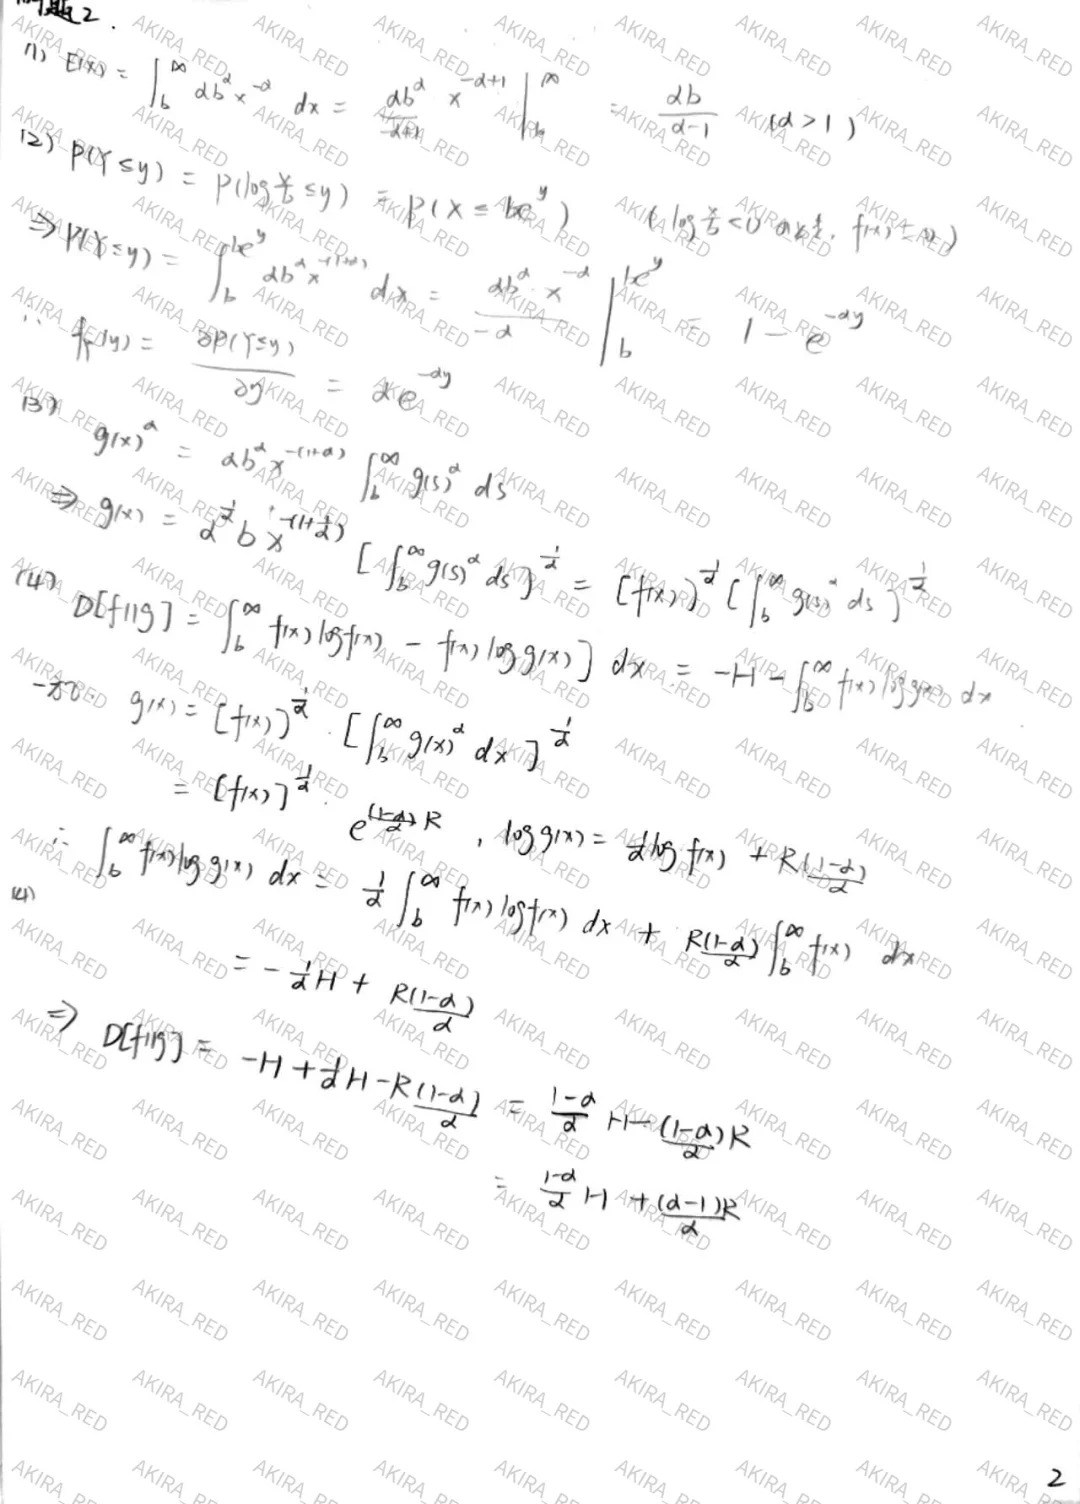 問題2.
(1) E(x) = ∫_b^∞ αb^α x^{-α} dx = αb^α/(-α+1) x^{-α+1} |_b^∞ = αb/(α-1) (α>1)
(2) P(Y≤y) = P(log x/b ≤y) = P(X ≤ be^y) (log x/b <0 のとき, f(x)=0)
⇒ P(Y≤y) = ∫_b^{be^y} αb^α x^{-(1+α)} dx = αb^α · x^{-α}/(-α) |_b^{be^y} = 1 - e^{-αy}
∴ f_Y(y) = ∂P(Y≤y)/∂y = αe^{-αy}
(3) g(x)^α = αb^α x^{-(1+α)} ∫_b^∞ g(s)^α ds
⇒ g(x) = α^{1/α} b x^{-(1+1/α)} [∫_b^∞ g(s)^α ds]^{1/α} = [f(x)]^{1/α} [∫_b^∞ g(s)^α ds]^{1/α}
(4) D[f||g] = ∫_b^∞ f(x) log f(x) - f(x) log g(x)] dx = -H - ∫_b^∞ f(x) log g(x) dx
一方. g(x) = [f(x)]^{1/α} · [∫_b^∞ g(x)^α dx]^{1/α}
= [f(x)]^{1/α} · e^{(1-α)/α R} , log g(x) = 1/α log f(x) + R(1-α)/α
∴ ∫_b^∞ f(x) log g(x) dx = 1/α ∫_b^∞ f(x) log f(x) dx + R(1-α)/α ∫_b^∞ f(x) dx
(4)
= - 1/α H + R(1-α)/α
⇒ D[f||g] = -H + 1/α H - R(1-α)/α = (1-α)/α H - (1-α)R/α
= (1-α)/α H + (α-1)R/α
2
AKIRA_RED